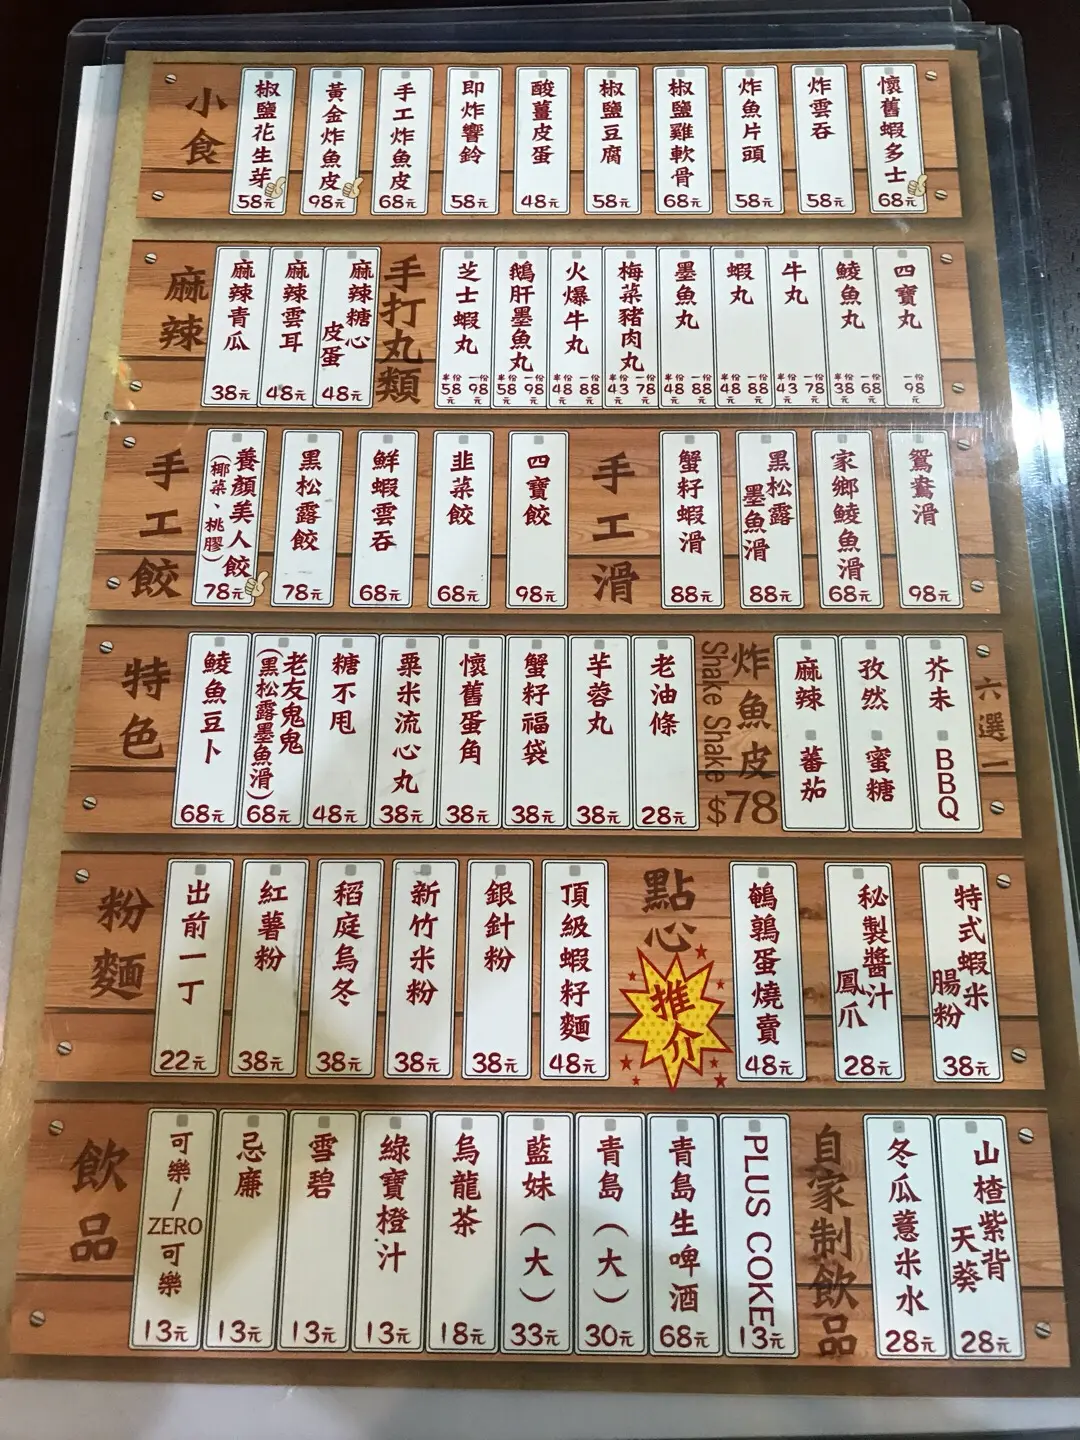 小食
椒鹽花生芽
58元
黃金炸魚皮
98元
手工炸魚皮
68元
即炸響鈴
58元
酸薑皮蛋
48元
椒鹽豆腐
58元
椒鹽雞軟骨
68元
炸魚片頭
58元
炸雲吞
58元
懷舊蝦多士
68元
麻辣
麻辣青瓜
38元
麻辣雲耳
48元
麻辣糖心
皮蛋
48元
手打丸類
芝士蝦丸
半份 一份
58元 98元
鵝肝墨魚丸
半份 一份
58元 98元
火爆牛丸
半份 一份
48元 88元
梅菜豬肉丸
半份 一份
43元 78元
墨魚丸
半份 一份
48元 88元
蝦丸
半份 一份
48元 88元
牛丸
半份 一份
43元 78元
鯪魚丸
半份 一份
38元 68元
四寶丸
一份
98元
手工餃
養顏美人餃
(椰菜、桃膠)
78元
黑松露餃
78元
鮮蝦雲吞
68元
韭菜餃
68元
四寶餃
98元
手工滑
蟹籽蝦滑
88元
黑松露
墨魚滑
88元
家鄉鯪魚滑
68元
鴛鴦滑
98元
特色
鯪魚豆卜
68元
老友鬼鬼
(黑松露墨魚滑)
68元
糖不甩
48元
粟米流心丸
38元
懷舊蛋角
38元
蟹籽福袋
38元
芋蓉丸
38元
老油條
28元
炸魚皮
Shake Shake
$78
麻辣
蕃茄
孜然
蜜糖
芥末
BBQ
六選一
粉麵
出前一丁
22元
紅薯粉
38元
稻庭烏冬
38元
新竹米粉
38元
銀針粉
38元
頂級蝦籽麵
48元
點心
推介
鵪鶉蛋燒賣
48元
秘製醬汁
鳳爪
28元
特式蝦米
腸粉
38元
飲品
可樂/ZERO可樂
13元
忌廉
13元
雪碧
13元
綠寶橙汁
13元
烏龍茶
18元
藍妹（大）
33元
青島（大）
30元
青島生啤酒
68元
PLUS COKE
13元
自家制飲品
冬瓜薏米水
28元
山楂紫背
天葵
28元